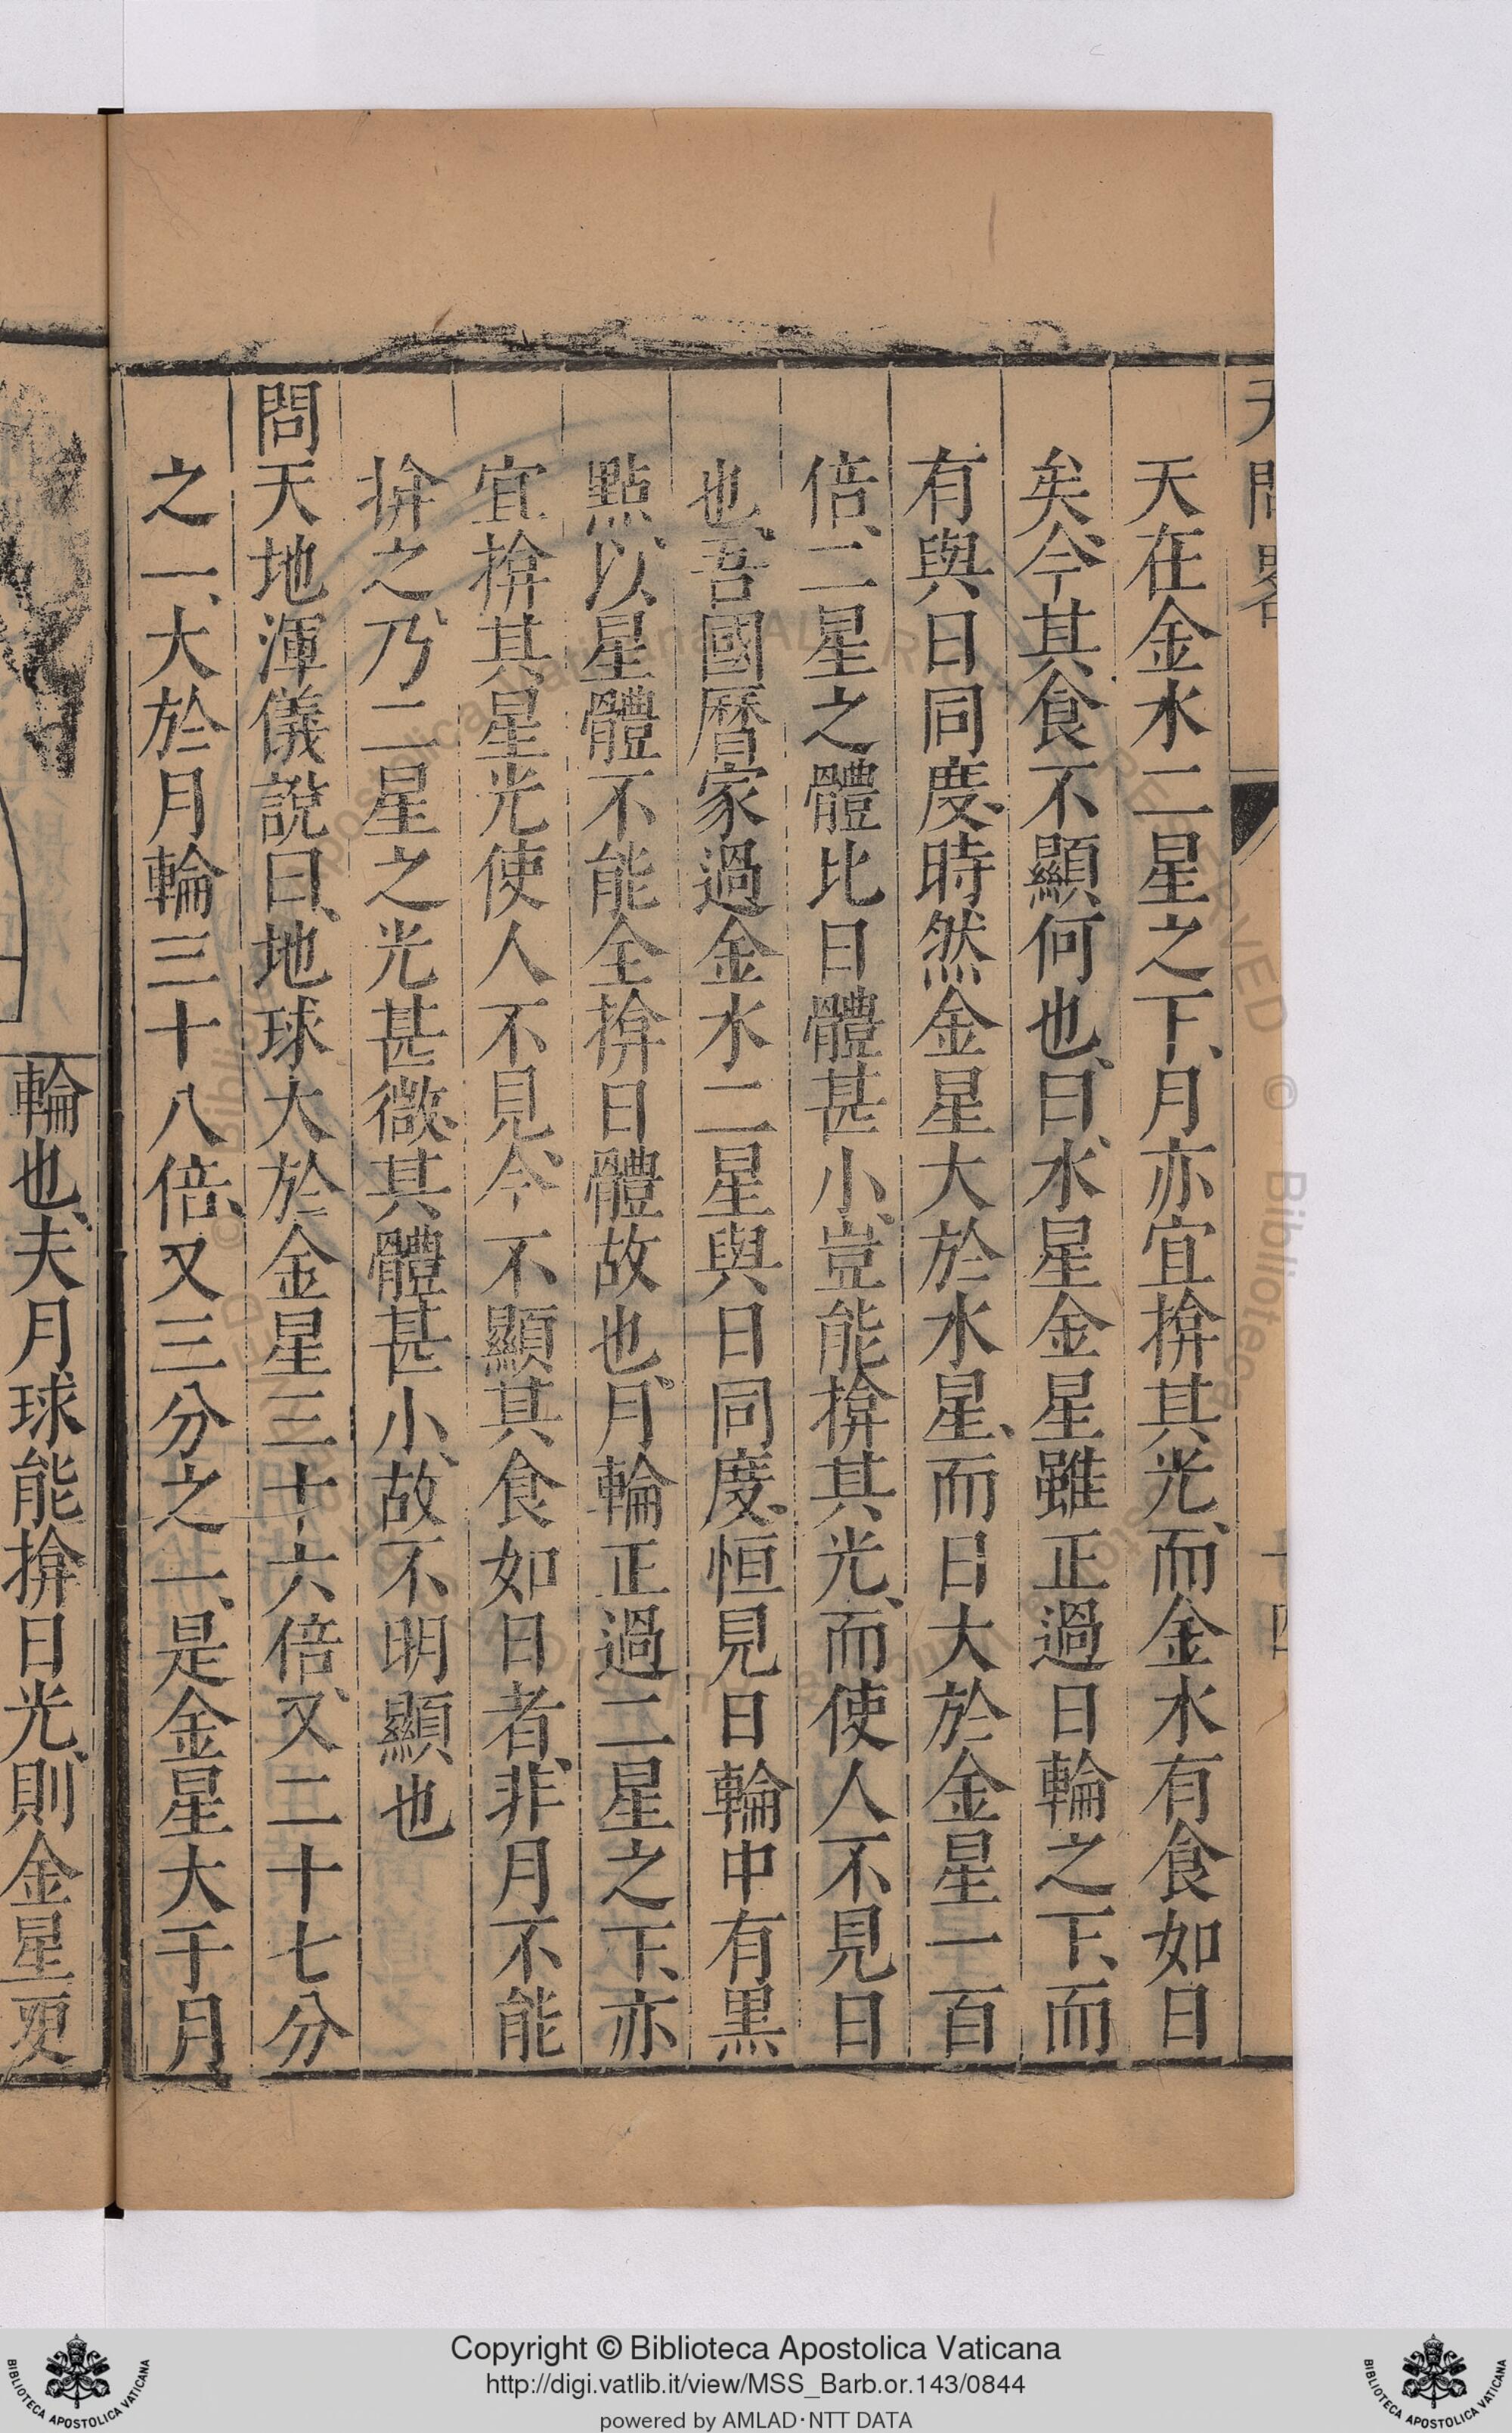 天問畧
天在金水二星之下、月亦宜揜其光、而金水有食如日
矣、今其食不顯何也、曰、水星金星雖正過日輪之下、而
有與日同度、時然金星大於水星、而日大於金星一百
倍、二星之體比日體甚小、豈能揜其光、而使人不見日
也、吾國曆家過金水二星與日同度、恒見日輪中有黑
點、以星體不能全揜日體故也、月輪正過二星之下、亦
宜揜其星光使人不見、今不顯其食如日者、非月不能
揜之、乃二星之光甚微、其體甚小、故不明顯也
問天地渾儀說曰、地球大於金星三十六倍、又二十七分
之一、大於月輪三十八倍、又三分之一、是金星大于月
輪也、夫月球能揜日光、則金星更
Copyright © Biblioteca Apostolica Vaticana
http://digi.vatlib.it/view/MSS_Barb.or.143/0844
powered by AMLAD·NTT DATA
BIBLIOTECA APOSTOLICA VATICANA
BIBLIOTECA APOSTOLICA VATICANA